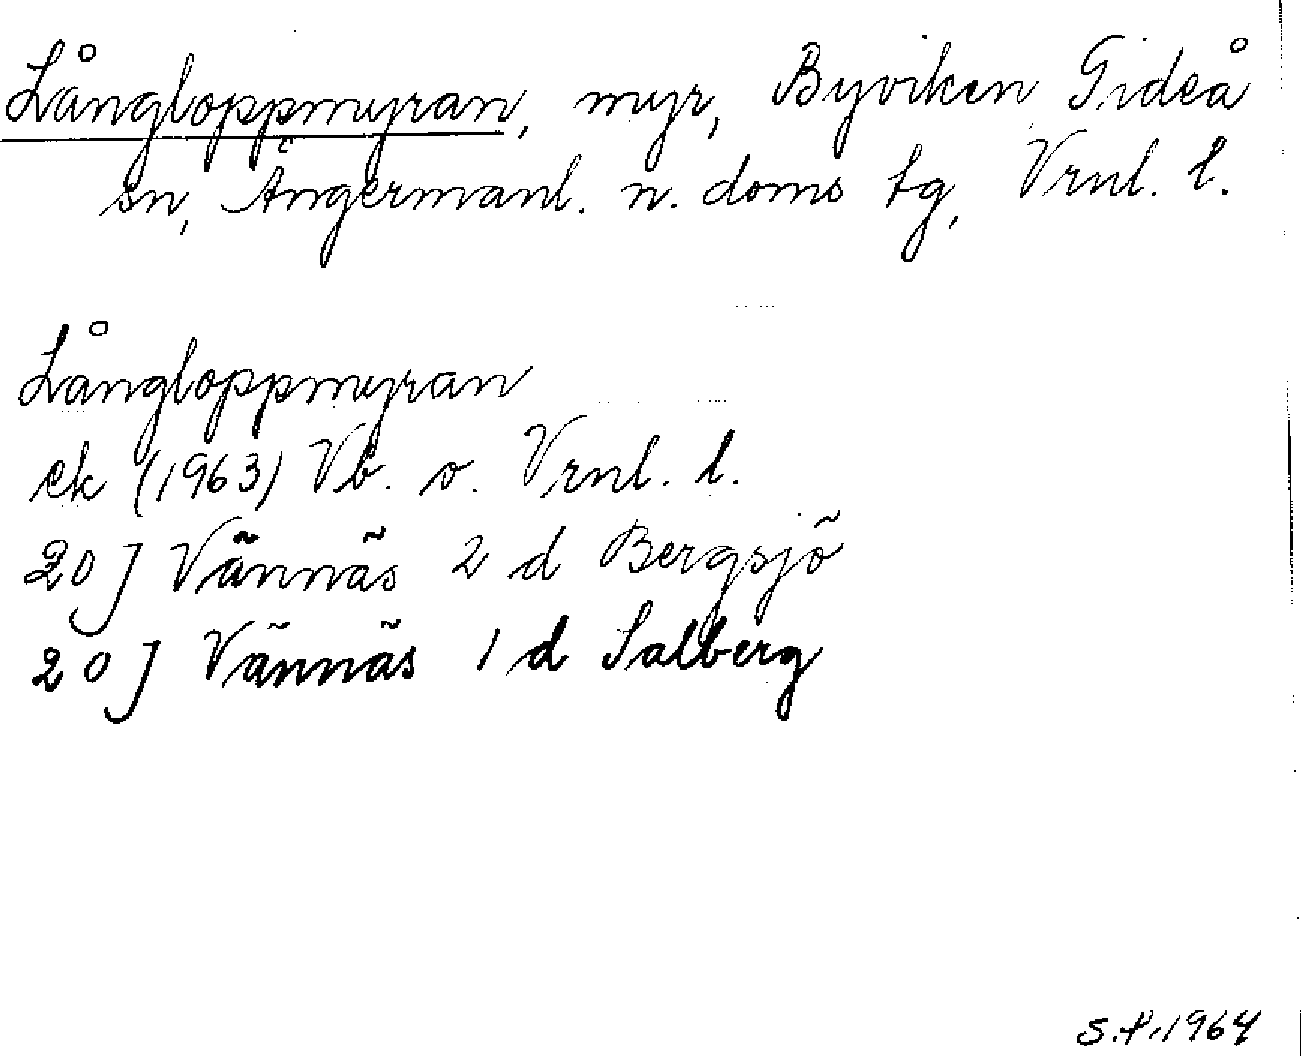 Långloppmyran, myr, Byviken Gideå
sn, Ångermanl. n. doms tg, Vrnl. l.
Långloppmyran
ek (1963) Vb. o. Vrnl. l.
20 J Vännäs 2 d Bergsjö
20 J Vännäs 1 d Salberg
S.P. 1964